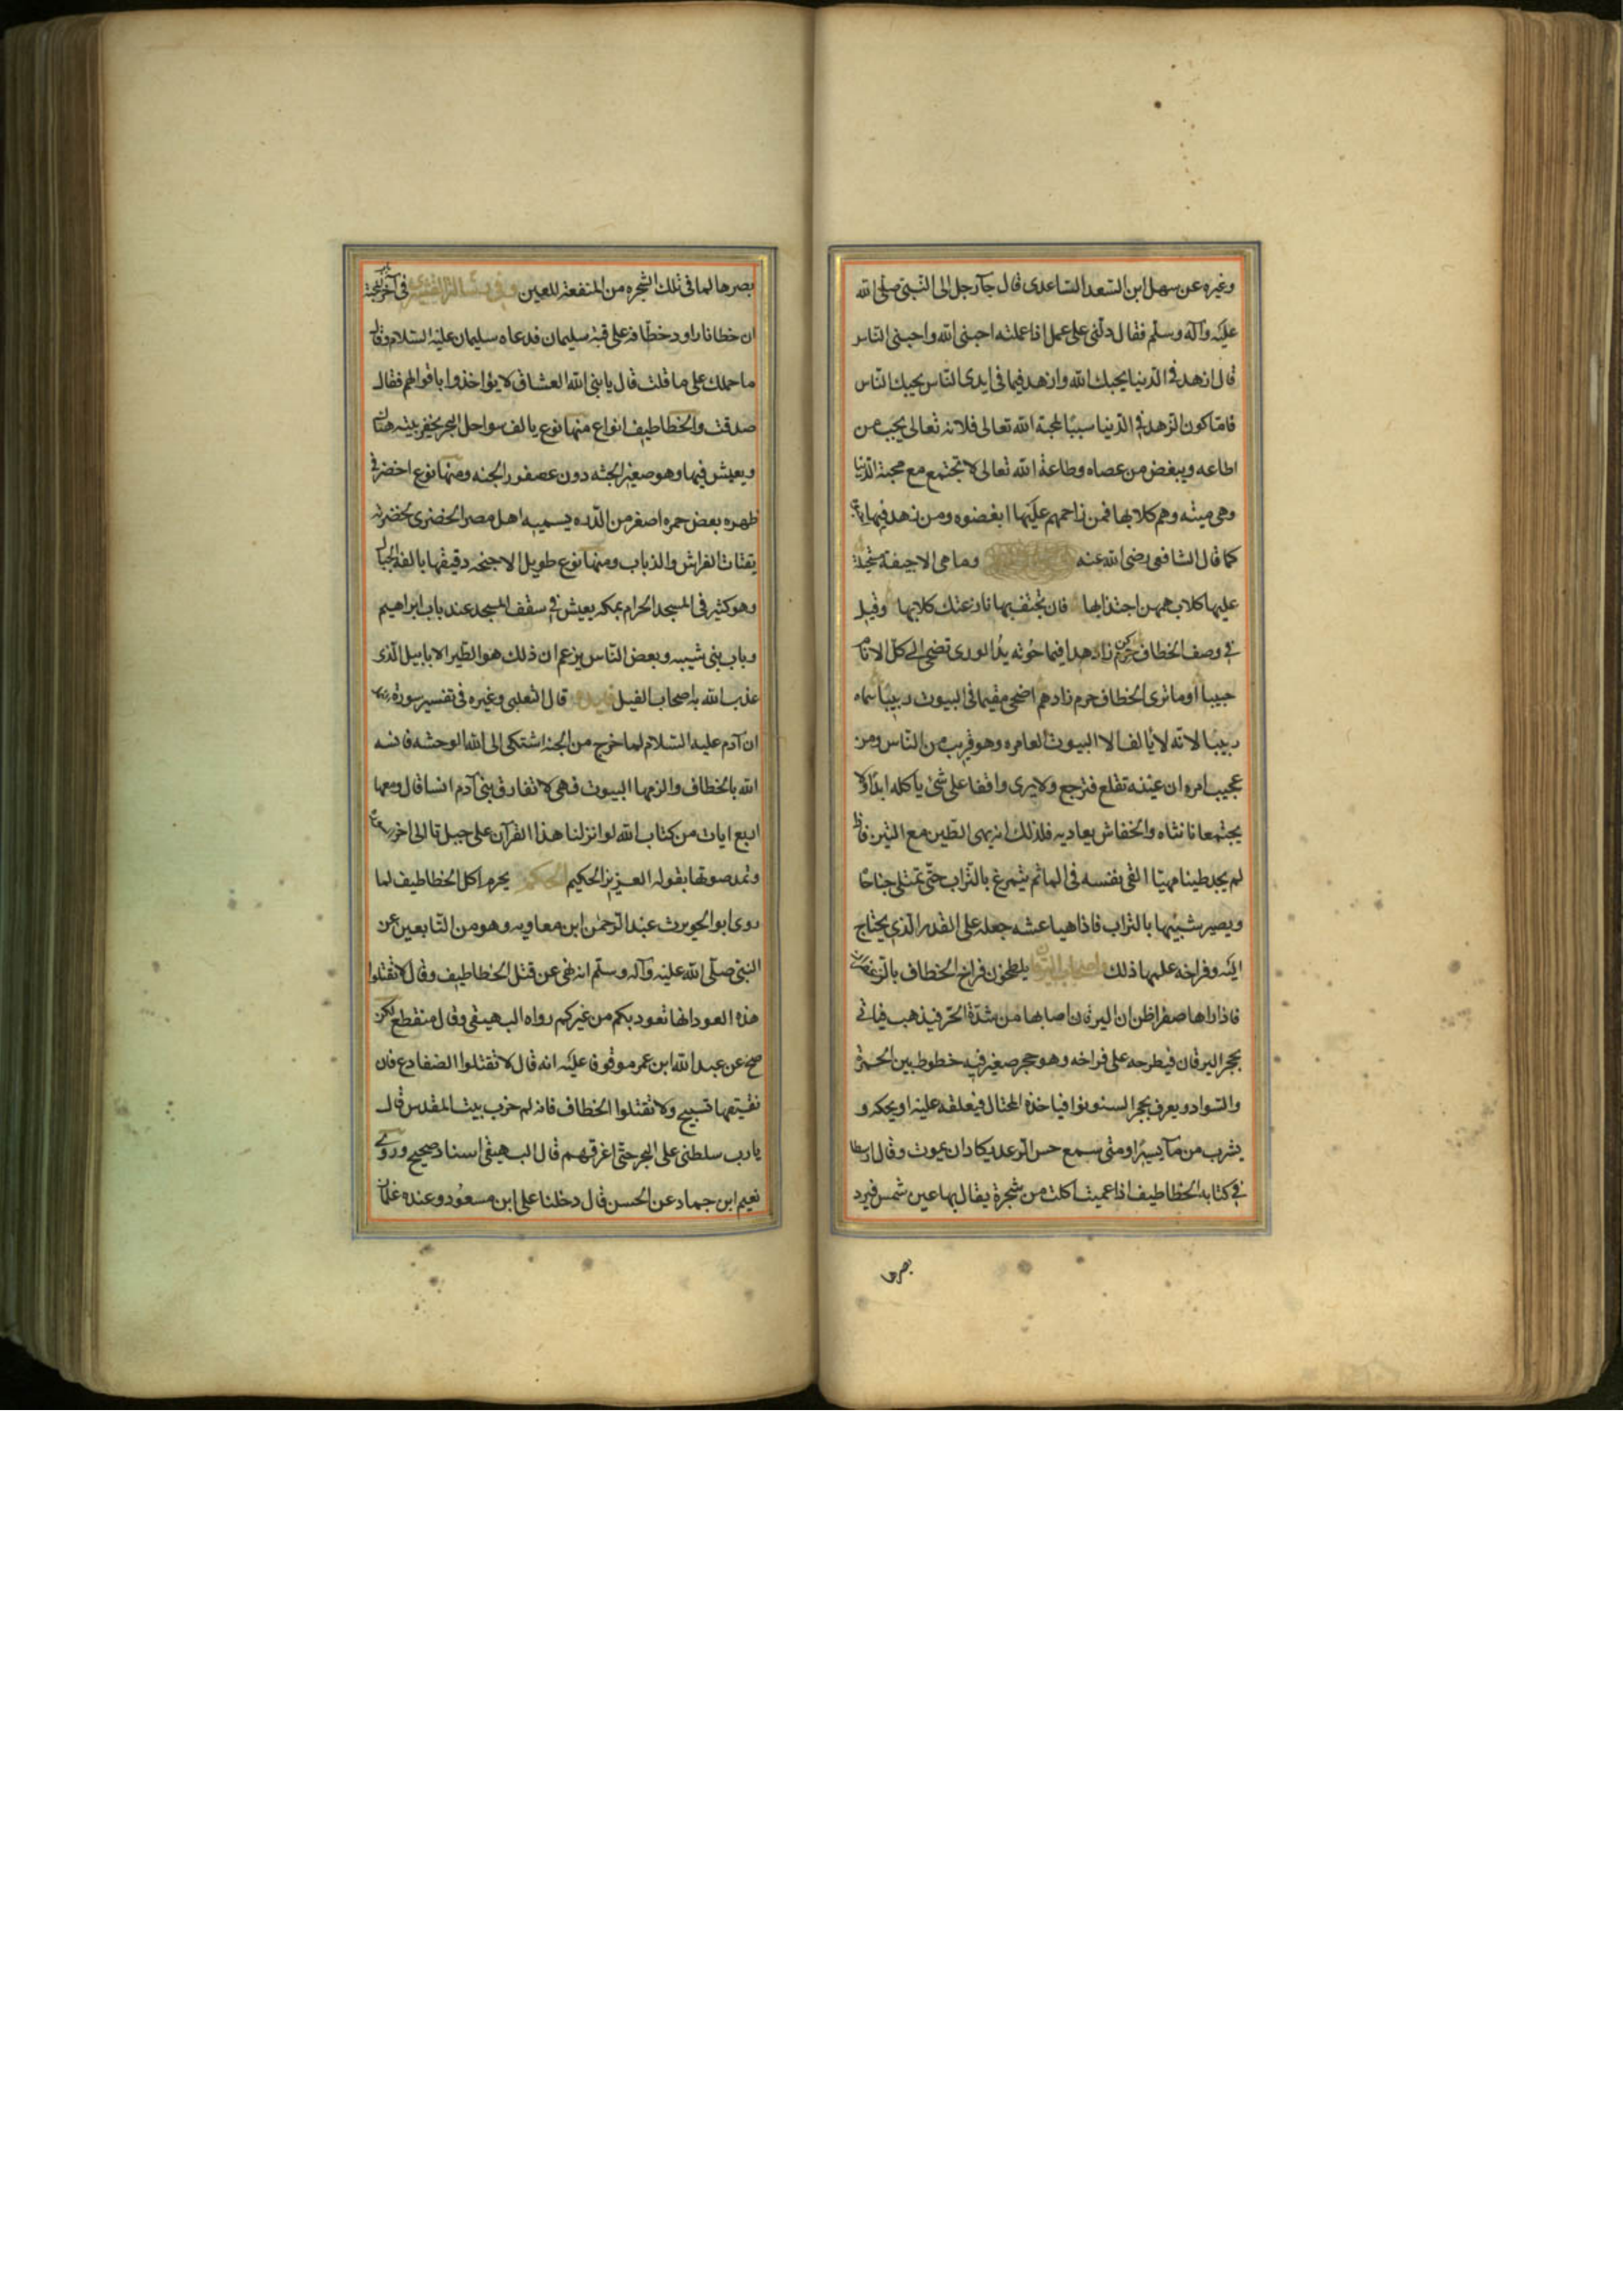 وغيره عن سهل ابن السعد الساعدى قال جآ رجل الى النبى صلى الله
عليه وآله وسلم فقال دلنى على عمل اذا عملته احبنى الله واحبنى الناس
قال ازهد فى الدنيا يحبك الله وازهد فيما فى ايدى الناس يحبك الناس
فامّا كون الزهد فى الدنيا سببًا لمحبة الله تعالى فلانه تعالى يحب من
اطاعه ويبغض من عصاه وطاعة الله تعالى لا تجتمع مع محبة الدنيا
وهى ميته وهم كلابها فمن زاحمهم عليها ابغضوه ومن زهد فيها
كما قال الشافعى رضى الله عنه وما هى الا جيفة
عليها كلاب همهن اجتذابها فان تجتنبها نازعتك كلابها وقيل
فى وصف الخطاف كن زاهدا فيما حوته يد الورى تضحى الى كل الانام
حبيبا اوما ترى الخطاف حرم زادهم اضحى مقيما فى البيوت ربيبا سماه
ربيبا لانه لا يالف الا البيوت العامره وهو قريب من الناس ومن
عجيب امره ان عينه تقلع فترجع ولا يرى واقفا على شئ ياكله ابدًا ولا
يجتمعا بانثاه والخفاش يعاديه فلذلك انه يهى الطين مع التبن فاذا
لم يجد طينا مهيّا القى بنفسه فى الما ثم يتمرغ بالتراب حتى تمتلى جناحا
ويصير شبيها بالتراب فاذا هيا عشه جعله على القدر الذى يحتاج
اليه وفراخه علمها ذلك واصحاب اليرقان يلطخون فراخ الخطاف بالزعفران
فاذا راها صفرا ظن ان اليرقان اصابها من شدّة الحرّ فيذهب فياتى
بحجر اليرقان فيطرحه على فراخه وهو حجر صغير فيه خطوط بين الحمرة
والسواد ويعرف بحجر السنونو فياخذه المحتال فيعلقه عليه او يحكه و
يشرب من مآيه يسيرًا ومتى سمع حس الرعد يكاد ان يموت وقال ارسطا
فى كتابه الخطاطيف اذا عميت اكلت من شجرة يقال لها عين شمس فيرد
بصرها
بصرها لما فى تلك الشجره من المنفعة للعين وفى رسالة القشيرى فى آخر
ان خطافا راود خطّافة على قبة سليمان فدعاه سليمان عليه السّلام وقال
ما حملك على ما قلت قال يا نبى الله العشاق لا يؤاخذوا باقوالهم فقال
صدقت والخطاطيف انواع منها نوع يالف سواحل البحر يحفر بيته هناك
ويعيش فيها وهو صغير الجثه دون عصفور الجنه ومنها نوع اخضر فى
ظهره بعض حمره اصغر من الدره يسميه اهل مصر الخضرى لخضرته
يقتات الفراش والذباب ومنها نوع طويل الاجنحه دقيقها يالف الجبال
وهو كثير فى المسجد الحرام بمكه يعيش فى سقف المسجد عند باب ابراهيم
وباب بنى شيبه وبعض النّاس يزعم ان ذلك هو الطير الابابيل الذى
عذب الله به اصحاب الفيل قال الثعلبى وغيره فى تفسير سورة
ان آدم عليه السّلام لما خرج من الجنة اشتكى الى الله الوحشه فانسه
الله بالخطاف والزمها البيوت فهى لا تفارق بنى آدم انسا قال ومعها
اربع ايات من كتاب الله لو انزلنا هذا القرآن على جبل تا الى اخر
وتمد صوتها بقوله العزيز الحكيم الحكم يحرم اكل الخطاطيف لما
روى ابو الحويرث عبد الرّحمن ابن معاويه وهو من التّابعين عن
النبى صلّى الله عليه وآله وسلّم انه نهى عن قتل الخطاطيف وقال لا تقتلوا
هذه العوذ انها تعوذ بكم من غيركم رواه البيهقى وقال منقطع لكن
صح عن عبد الله ابن عمر موقوفا عليه انه قال لا تقتلوا الضفادع فان
نقيقها تسبيح ولا تقتلوا الخطاف فانه لم خرب بيت المقدس قال
يا رب سلطنى على البحر حتّى اغرقهم قال البيهقى اسناد صحيح وروى
نعيم ابن حماد عن الحسن قال دخلنا على ابن مسعود وعنده غلمان